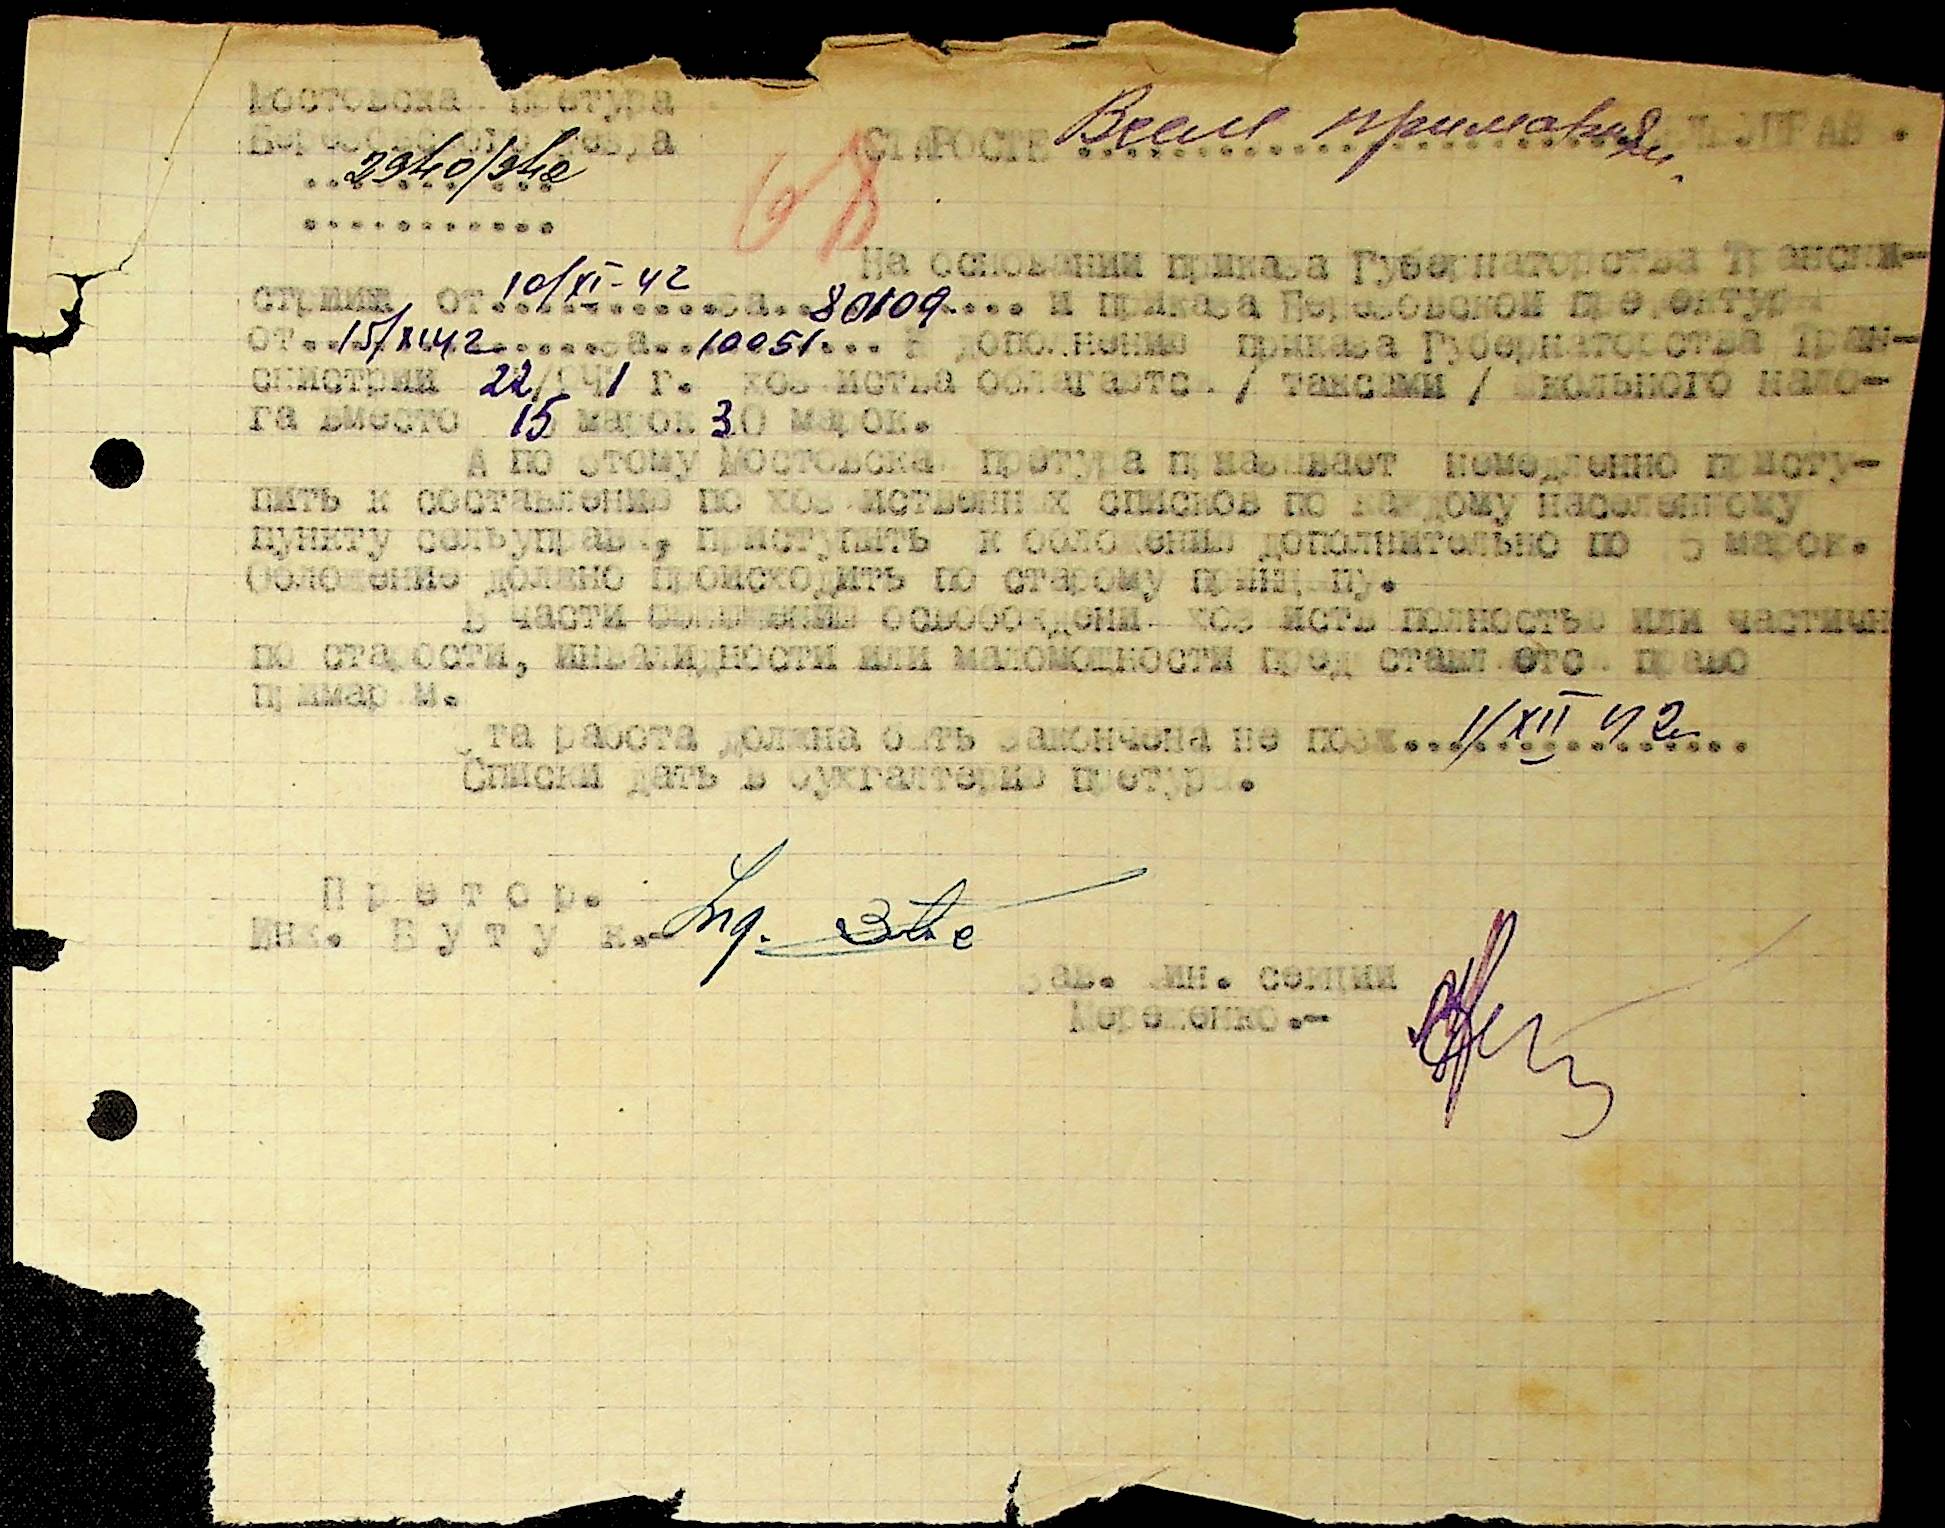 Мостовская претура
Березовского уезда
СТАРОСТЕ Всем примариям. СЕЛЬУПРАВ.
2940/942
На основании приказа Губернаторства Транснистрии
стрии от 10/XI-42 за 80109 и приказа Березовской префектуры
от 15/XI 42 за 10051 в дополнение приказа Губернаторства Тран-
снистрии 22/1941 г. хозяйства облагаются / таксами / школьного нало-
га вместо 15 марок 30 марок.
А по этому Мостовская претура приказывает немедленно присту-
пить к составлению по хозяйственных списков по каждому населенному
пункту сельуправы, приступить к обложению дополнительно по 15 марок.
Обложение должно происходить по старому принципу.
В части освобождения хозяйств полностью или частичн
по старости, инвалидности или маломощности представляется право
примариям.
Эта работа должна быть закончена не позж. 1/XII 42г.
Списки дать в бухгалтерию претуры.
Претор.
Инж. Бутук.- Ing.
Зав. Фин. секции
Мереженко.-